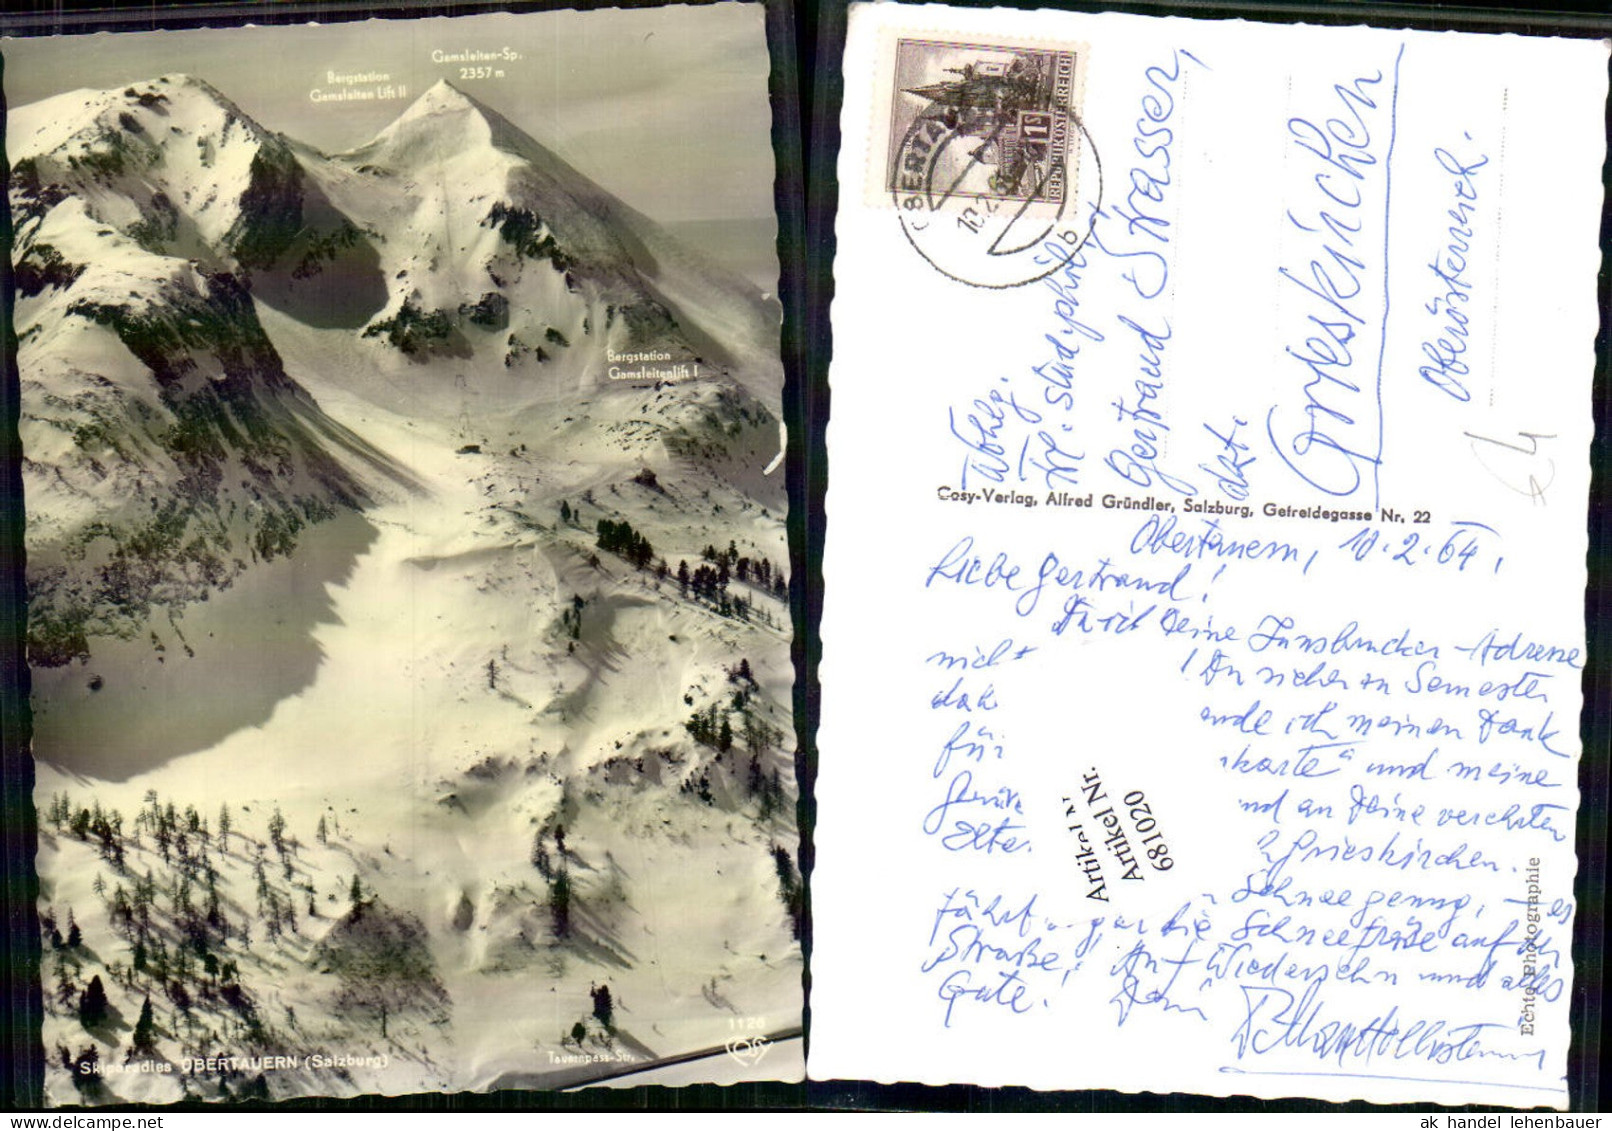 Gamsleiten-Sp.
2357 m
Bergstation
Gamsleiten Lift II
Bergstation
Gamsleitenlift I
Skiparadies OBERTAUERN (Salzburg)
Tauernpass-Str.
1126
COSY
REPUBLIK ÖSTERREICH
1S
OBERTAU
10.2.
b
Frl. stud. phil.
Gertraud Strasser,
dzt.
Grieskirchen
Oberösterreich.
€4
Cosy-Verlag, Alfred Gründler, Salzburg, Getreidegasse Nr. 22
Obertauern, 10.2.64.
Liebe Gertraud!
Da ich Deine Innsbrucker-Adresse
nicht Du sicher in Semester
dah ende ich meinen Dank
für karte" und meine
nd an Deine verehrten
Elte Grieskirchen.
Schnee genug, es
fährt sogar die Schneefräse auf der
Straße! Auf Wiedersehn und alles
Gute! Dein
Artikel Nr.
Artikel Nr.
681020
Echte Photographie
ak handel lehenbauer